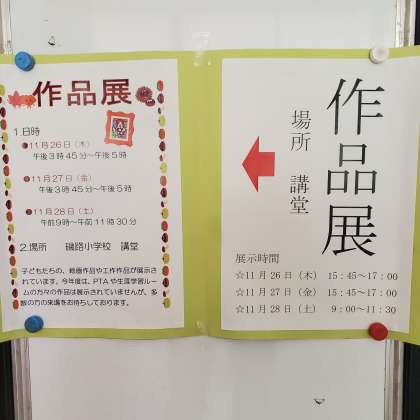 作品展
1.日時
●11月26日(木)
午後3時45分～午後5時
●11月27日(金)
午後3時45分～午後5時
●11月28日(土)
午前9時～午前11時30分
2.場所 磯路小学校 講堂
子どもたちの、絵画作品や工作作品が展示さ
れています。今年度は、PTAや生涯学習ルー
ムの方々の作品は展示されていませんが、多
数の方の来場をお待ちしております。
作品展
場所 講堂
展示時間
☆11月26日(木) 15:45～17:00
☆11月27日(金) 15:45～17:00
☆11月28日(土) 9:00～11:30